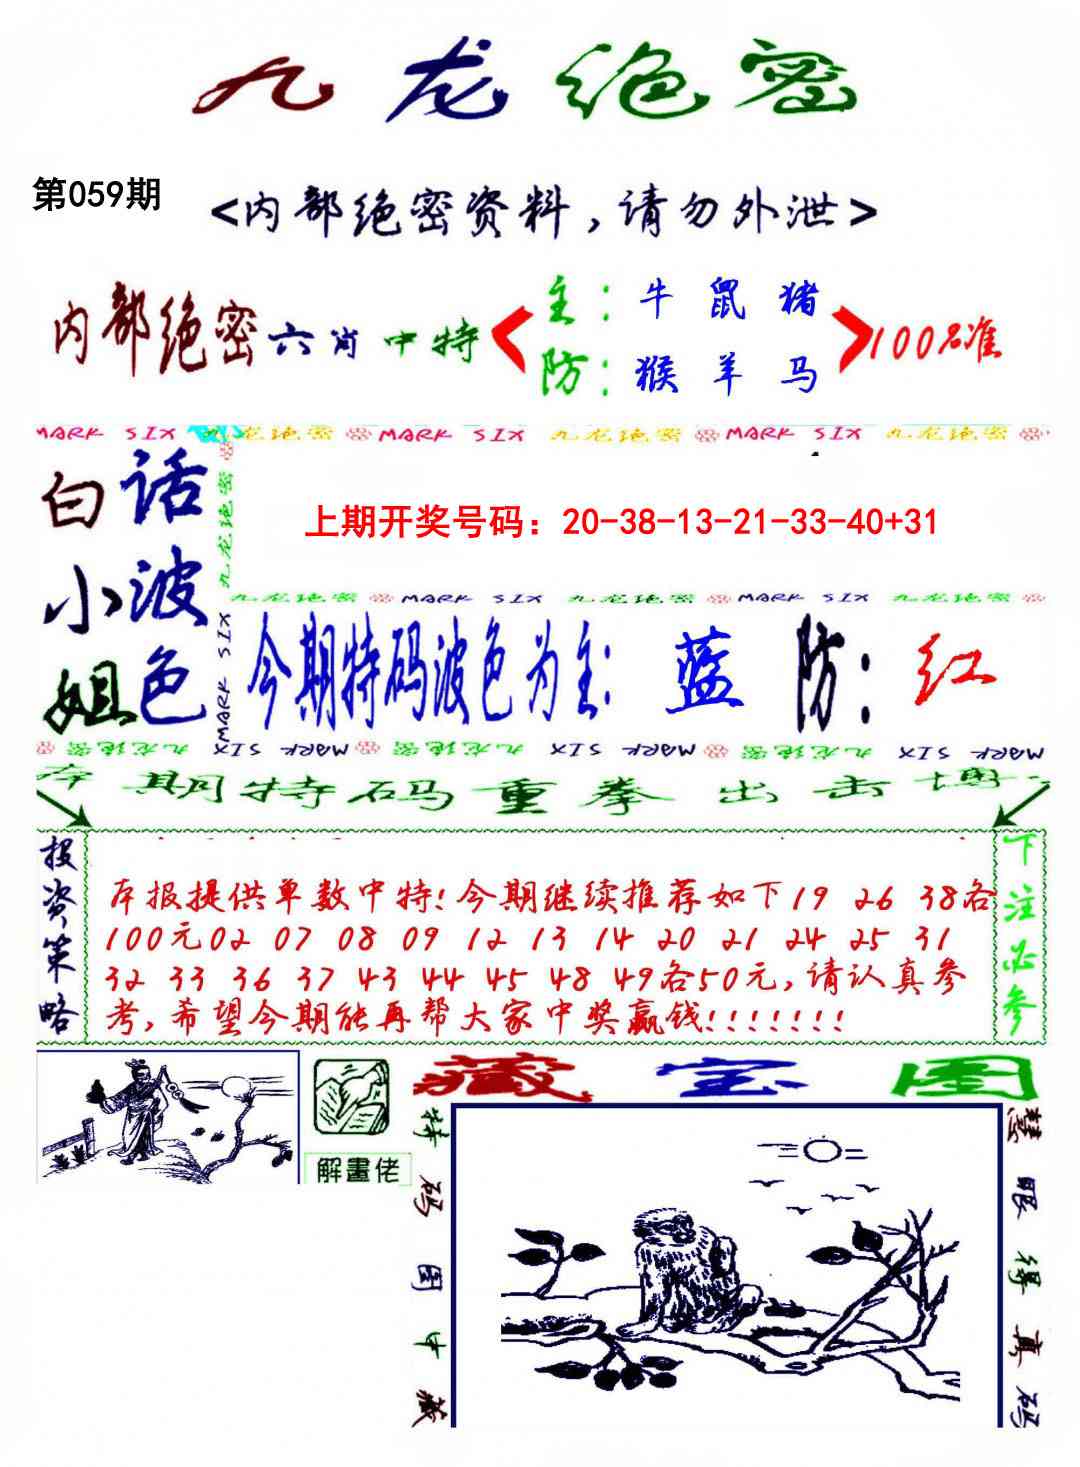 九龙绝密
第059期
<内部绝密资料,请勿外泄>
内部绝密六肖中特
主:牛 鼠 猪
防:猴 羊 马
100%准
MARK SIX 九龙绝密 MARK SIX 九龙绝密 MARK SIX 九龙绝密
白话
小波
姐色
九龙绝密
MARK SIX
上期开奖号码：20-38-13-21-33-40+31
九龙绝密 MARK SIX 九龙绝密 MARK SIX 九龙绝密
今期特码波色为主: 蓝 防: 红
九龙绝密 MARK SIX 九龙绝密 MARK SIX 九龙绝密 MARK SIX
本期特码重拳出击博
投资策略
本报提供单数中特!今期继续推荐如下19 26 38各
100元02 07 08 09 12 13 14 20 21 24 25 31
32 33 36 37 43 44 45 48 49各50元,请认真参
考,希望今期能再帮大家中奖赢钱!!!!!!!
下注必参
解畫佬
藏宝图
特码图中藏
慧眼得真码